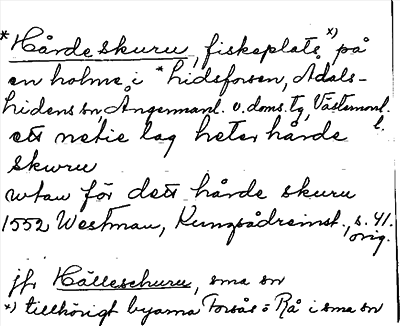 *Hårdeskuru, fiskeplats x) på
en holme i *Lidsforsen, Ådals-
Lidens sn, Ångermanl. v. doms. tg, Västernorrl. l.
ett netie lag heter hårde
skuru
utan för dett hårde skuru
1552 Westman, Kungsådreinst., s. 41.
orig.
jfr Hälleschuru, sma sn
x) tillhörigt byarna Forsås o Rå i sma sn